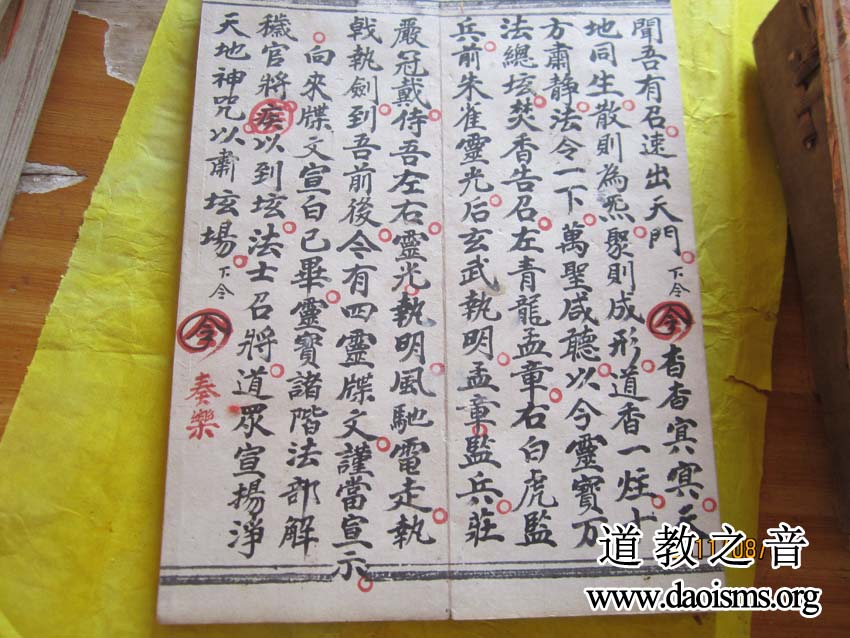 聞吾有召速出天門下令令杳杳冥冥天
地同生散則為炁聚則成形道香一炷十
方肅静法令一下萬聖咸聽以今靈寳万
法總坛焚香告召左青龍孟章右白虎監
兵前朱雀靈光后玄武執明孟章監兵莊
嚴冠戴侍吾左右靈光執明風馳電走執
戟執劍到吾前後今有四靈牒文謹當宣示
向來牒文宣白已畢靈寳諸階法部解
穢官將疾以到坛法士召將道眾宣揚淨
天地神咒以肅坛場下令令奏樂
道教之音
www.daoisms.org